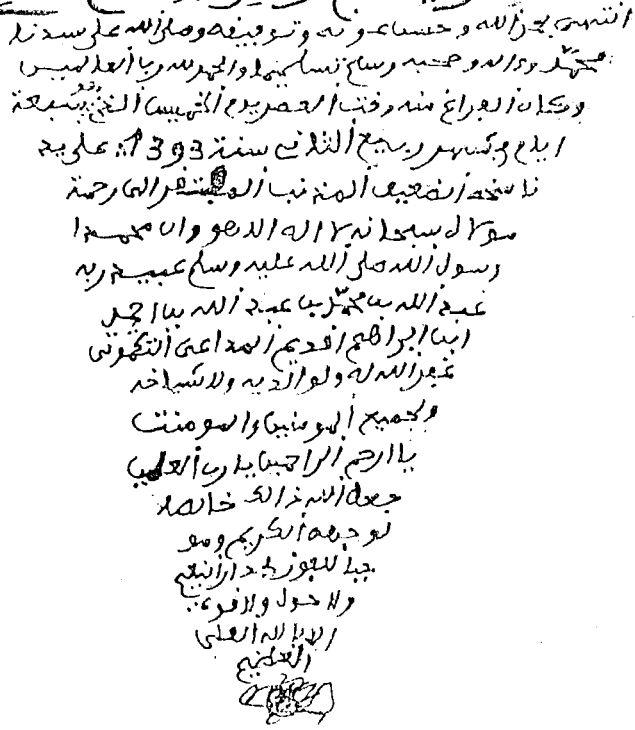 انتهى بحمد الله و حسن عونه و توفيقه وصلى الله على سيدنا
محمد وءاله وصحبه وسلم تسليما والحمد لله رب العالمين
وكان الفراغ منه وقت العصر يوم الخميس الذي بسبعة
ايام من شهر ربيع الثاني سنة 1393 على يد
ناسخه الضعيف المذنب المفتقر الى رحمة
مولاه سبحانه لا اله الا هو وان محمدا
رسول الله صلى الله عليه وسلم عبيد ربه
عبد الله بن محمد بن عبد الله بن احمد
ابن ابراهيم
غفر الله له ولوالديه ولاشياخه
ولجميع المومنين والمومنت
يا ارحم الراحمين يا رب العلمين
جعل الله ذالك خالصا
لوجهه الكريم ومو
جبا للفوز بدار النعيم
ولا حول ولا قوة
الا بالله العلي
العظيم